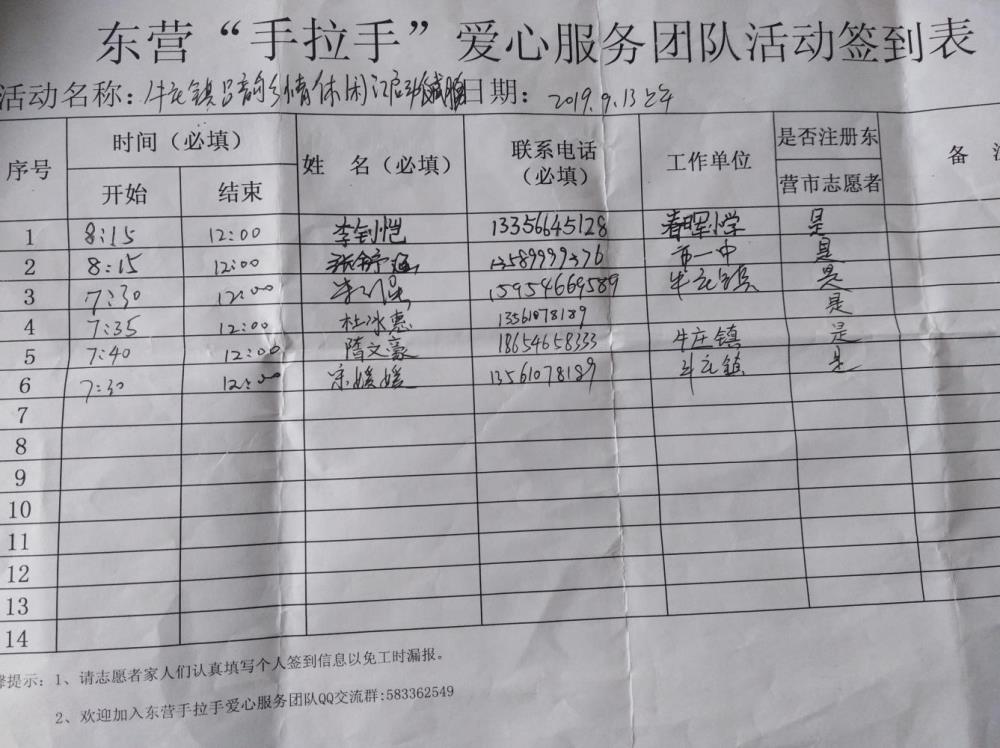 东营“手拉手”爱心服务团队活动签到表
活动名称：牛庄镇吕剧乡情休闲 日期：2019.9.13上午
序号 时间（必填） 姓 名（必填） 联系电话（必填） 工作单位 是否注册东营市志愿者 备
开始 结束
1 8:15 12:00 李钊恺 13356645128 春晖小学 是
2 8:15 12:00 张舒涵 13589999376 市一中 是
3 7:30 12:00 15954669589 牛庄镇 是
4 7:35 12:00 杜冰惠 13561078189 是
5 7:40 12:00 隋文豪 18654658333 牛庄镇 是
6 7:30 12:00 宋媛媛 13561078189 牛庄镇 是
7
8
9
10
11
12
13
14
提示：1、请志愿者家人们认真填写个人签到信息以免工时漏报。
2、欢迎加入东营手拉手爱心服务团队QQ交流群:583362549